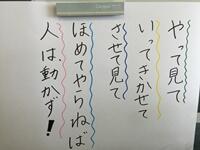 やって見て
いってきかせて
させて見て
ほめてやらねば
人は、動かず!